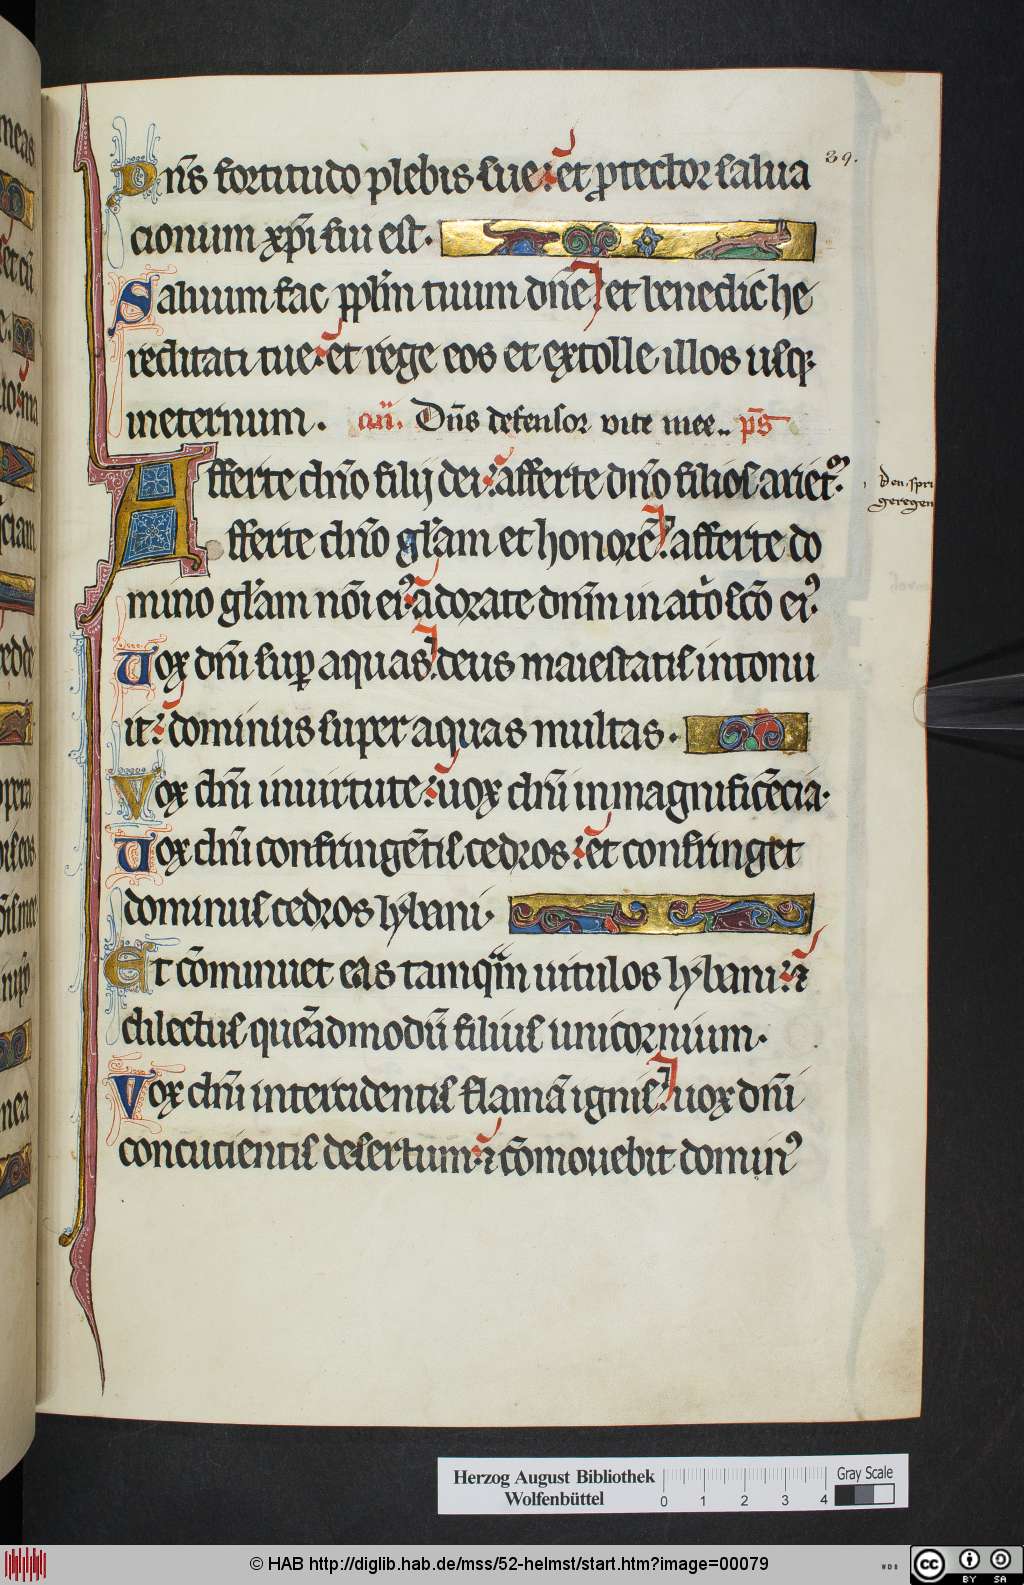 39.
Dn̄s fortitudo plebis sue: et ꝓtector salua
cionum xp̄i sui est.
Saluum fac pplm̄ tuum dn̄e et benedic he
reditati tue: et rege eos et extolle illos usq;
ineternum. an̄. Dn̄s defensor vite mee.. ps̄
Afferte dn̄o filij dei: afferte dn̄o filios ariet᷒.
Afferte dn̄o gl̄iam et honorē: afferte do
mino gl̄iam nōi eiꝰ: adorate dn̄m in at̄o sc̄o eiꝰ.
Uox dn̄i suꝑ aquas: deus maiestatis intonu
it: dominus super aquas multas.
Vox dn̄i inuirtute: uox dn̄i inmagnificēcia.
Uox dn̄i confringētis cedros: et confringet
dominus cedros lybani.
Et cōminuet eas tamqͣm uitulos lybani: ⁊
dilectus queādmodū filius unicornium.
Vox dn̄i intercidentis flamā ignis: uox dn̄i
concutientis desertum: ⁊ cōmouebit dominꝰ
Den spri
geregen
Herzog August Bibliothek
Wolfenbüttel
0 1 2 3 4
Gray Scale
© HAB http://diglib.hab.de/mss/52-helmst/start.htm?image=00079
WDB
cc BY SA